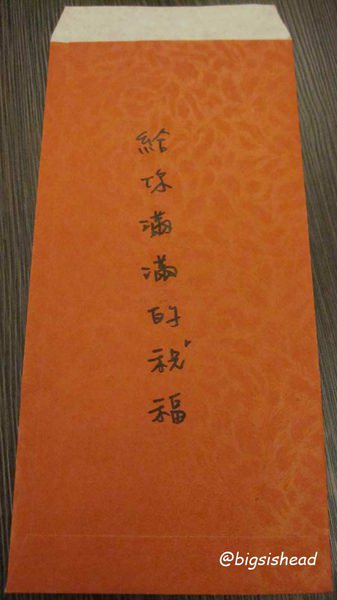 給你滿滿的祝福
@bigsishead